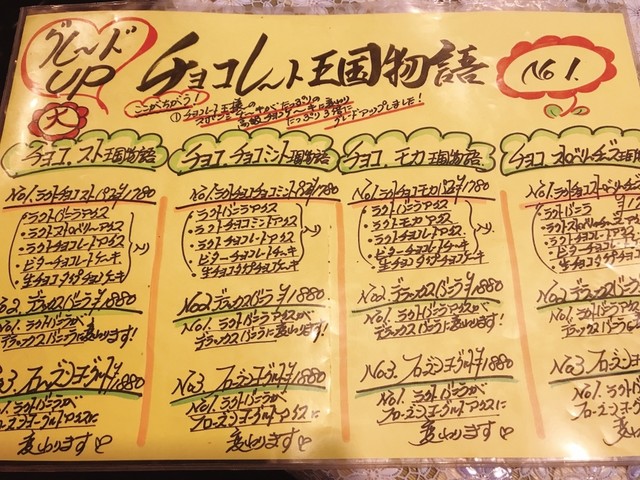 グレードUP
チョコレート王国物語
No1.
ここがちがう!
大
チョコ.スト王国物語
No1.ラクトチョコストパフェ¥1780
・ラクトバニラアイス
・ラクトストロベリーアイス
・ラクトチョコレートアイス
・ビターチョコレートケーキ
・生チョコタイプチョコケーキ
入り
No2.デラックスバニラ¥1880
No1.ラクトバニラが
デラックスバニラに変わります!
No3.フローズンヨーグルト¥1880
No1.ラクトバニラが
フローズンヨーグルトアイスに
変わります♡
チョコ.チョコミント王国物語
No1.ラクトチョコチョコミントパフェ¥1780
・ラクトバニラアイス
・ラクトチョコミントアイス
・ラクトチョコレートアイス
・ビターチョコレートケーキ
・生チョコタイプチョコケーキ
入り
No2.デラックスバニラ¥1880
No1.ラクトバニラアイスが
デラックスバニラに変わります!
No3.フローズンヨーグルト¥1880
No1.ラクトバニラが
フローズンヨーグルトアイスに
変わります♡
チョコ.モカ王国物語
No1.ラクトチョコモカパフェ¥1780
・ラクトバニラアイス
・ラクトモカアイス
・ラクトチョコレートアイス
・ビターチョコレートケーキ
・生チョコタイプチョコケーキ
入り
No2.デラックスバニラ¥1880
No1.ラクトバニラアイスが
デラックスバニラに変わります!
No3.フローズンヨーグルト¥1880
No1.ラクトバニラが
フローズンヨーグルトアイスに
変わります♡
チョコ.ストロベリーチーズ王国物
No1.ラクトチョコストロベリーチーズ
・ラクトバニラ
・ラクトストロベリーチーズ
・ラクトチョコレート
・ビターチョコレート
・生チョコタイプチョコ
No2.デラックスバニラ
No1.ラクトバニラアイス
デラックスバニラに変
No3.フローズンヨーグ
No1.ラクトバニラ
フローズンヨーグル
変わります